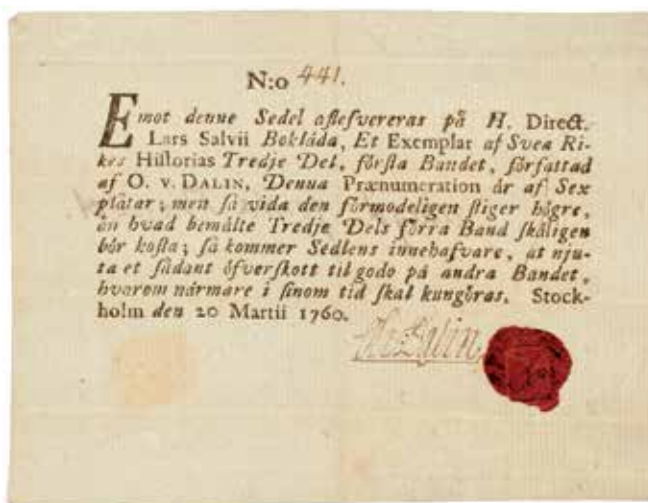 N:o 441.
Emot denne Sedel aflefvereras på H. Direct.
Lars Salvii Boklåda, Et Exemplar af Svea Ri-
kes Historias Tredje Del, första Bandet, författad
af O. v. DALIN. Denna Prænumeration är af Sex
plåtar; men så vida den förmodeligen stiger högre,
än hvad bemälte Tredje Dels förra Band skäligen
bör kosta; så kommer Sedlens innehafvare, at nju-
ta et sådant öfverskott til godo på andra Bandet,
hvarom närmare i sinom tid skal kungöras. Stock-
holm den 20 Martii 1760.
Dalin